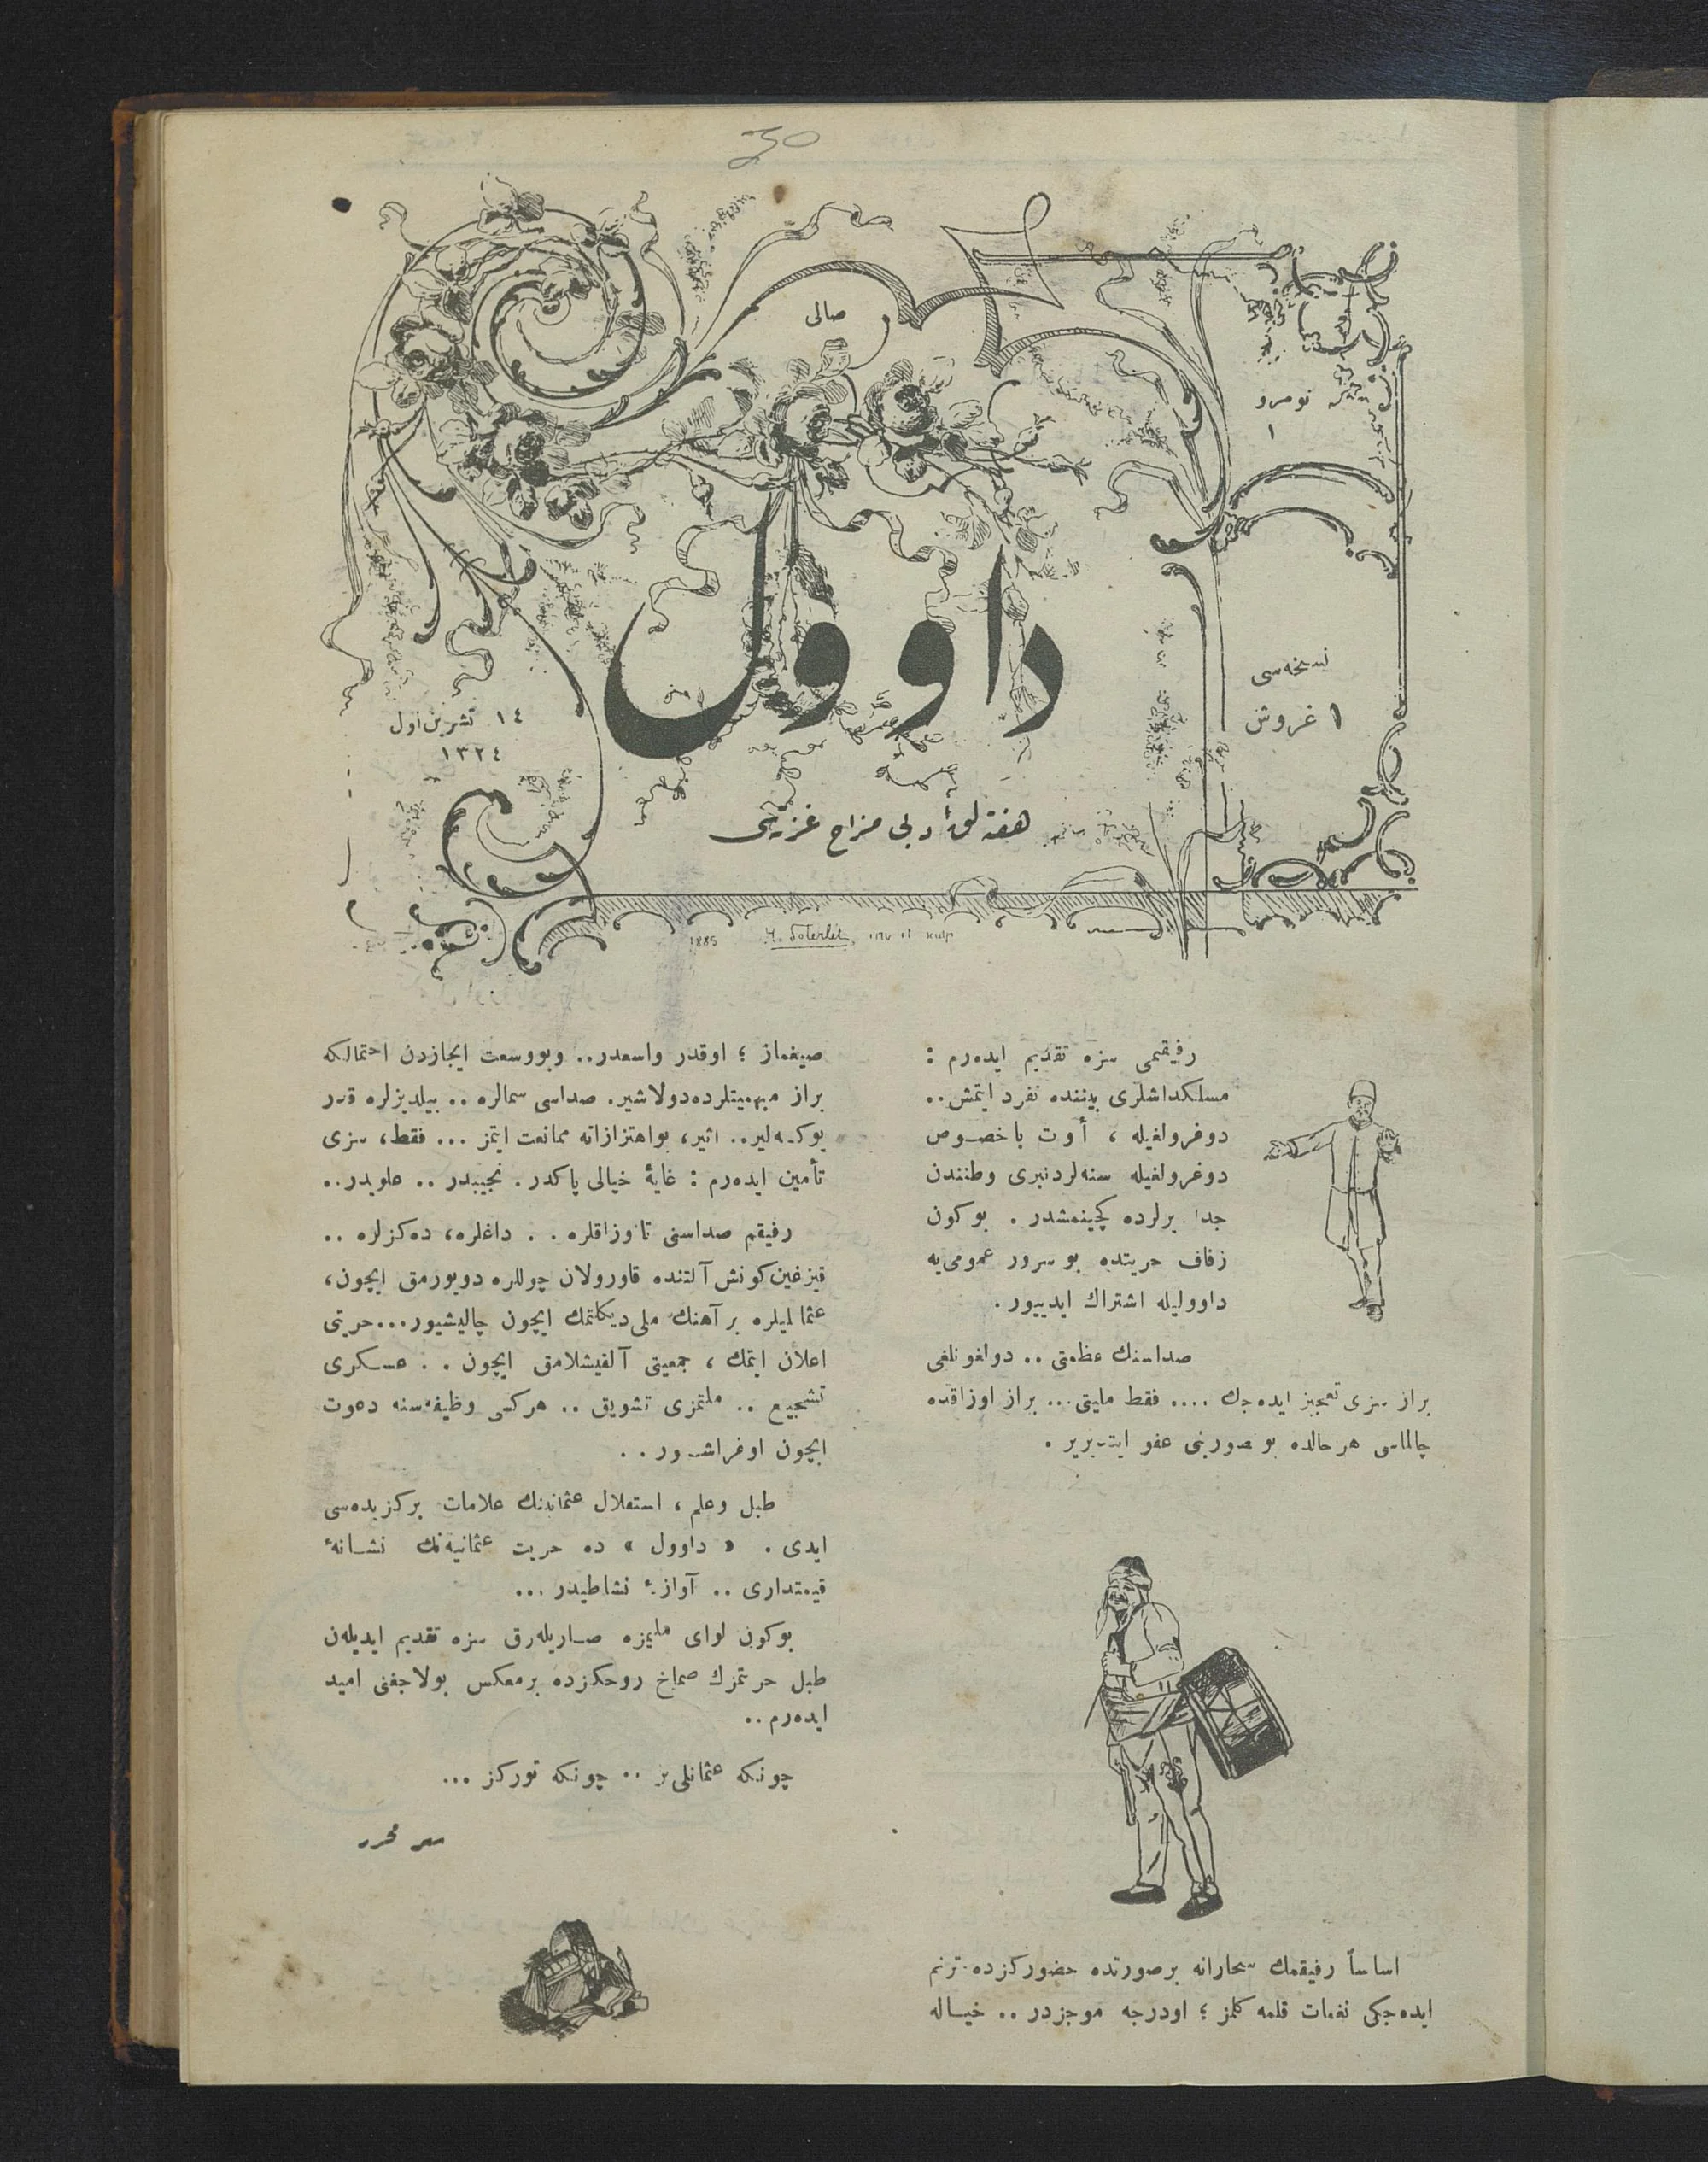 30
صالی
نومرو
١
داوول
نسخه‌سی
١ غروش
١٤ تشرین اول
١٣٢٤
هفته‌لق ادبی مزاح غزته‌سی
1885
رفیقمی سزه تقدیم ایده‌رم :
مسلکداشلری بیننده تفرد ایتمش..
دوغرولغیله ، أوت باخصوص
دوغرولغیله سنه‌لردنبری وطنندن
جدا برلرده کچینمشدر . بوکون
زفاف حریتده بو سرور عمومی‌یه
داوولیله اشتراك ایدییور.
صداسنك عظمتی .. دولغونلغی
براز سزی تعجیز ایده‌جك .... فقط ملیتی... براز اوزاقده
چالماسی هر حالده بو قصورینی عفو ایتدیریر .
اساساً رفیقمك سحارانه برصورتده حضورکزده ترنم
ایده‌جکی نغمات قلمه کلمز ؛ اودرجه موجزدر .. خیاله
صیغماز ؛ اوقدر واسعدر.. وبووسعت ایجازدن احتمالکه
براز مبهمیتلرده‌دولاشیر. صداسی سمالره .. ییلدیزلره قدر
یوکسه‌لیر.. اثیر، بواهتزازاته ممانعت ایتمز ... فقط، سزی
تأمین ایده‌رم : غایهٔ خیالی پاکدر. نجیبدر .. علویدر..
رفیقم صداسنی تا اوزاقلره . . داغلره، ده‌کزلره ..
قیزغین کونش آلتنده قاورولان چوللره دویورمق ایچون،
عثمانلیلره بر آهنك ملی دیکلتمك ایچون چالیشیور...حریتی
اعلان ایتمك ، جمعیتی آلقیشلامق ایچون . . عسکری
تشجیع .. ملتمزی تشویق .. هرکسی وظیفه‌سنه دعوت
ایچون اوغراشیور . .
طبل وعلم ، استقلال عثمانینك علامات برکزیده‌سی
ایدی . « داوول » ده حریت عثمانیه‌نك نشانهٔ
قیمتداری .. آوازهٔ نشاطیدر ...
بوکون لوای ملیمزه صاریله‌رق سزه تقدیم ایدیله‌ن
طبل حریتمزك صماخ روحکزده برمعکس بولاجغنی امید
ایده‌رم..
چونکه عثمانلی‌یز .. چونکه تورکز ...
سر محرر